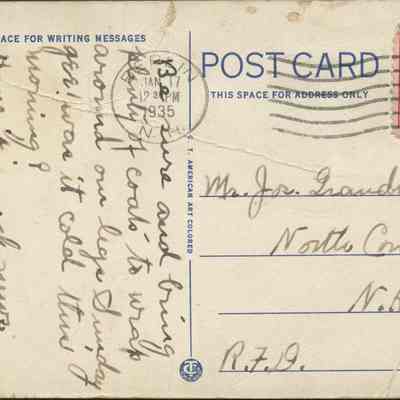 ACE FOR WRITING MESSAGES
POST CARD
THIS SPACE FOR ADDRESS ONLY
BERLIN
JAN 17
12 PM
1935
N.H.
Be sure and bring
plenty of coats to wrap
around our legs Sunday
gee! was it cold this
morning?
C. T. AMERICAN ART COLORED
Mr. Jos.
North Con
N.
R.F.D.